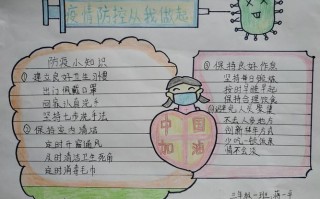 疫情防控从我做起
防疫小知识
①建立良好卫生习惯
出门佩戴口罩
回家认真洗手
七步洗手法
②保持室内清洁
定时开窗通风
及时清洁卫生死角
定时消毒
中国
加油
③保持良好作息
坚持每日锻炼
按时早睡早起
保持合理饮食
不去人多地方
三年级一班